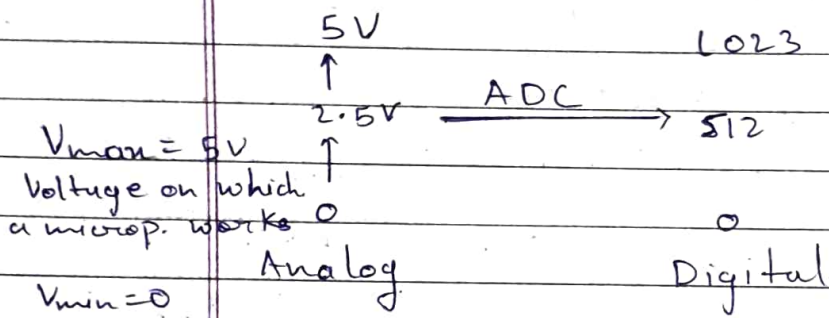 5V 1023
↑
2.5V ADC → 512
Vmax = 5V ↑
Voltage on which
a microp. works 0 0
Analog Digital
Vmin=0